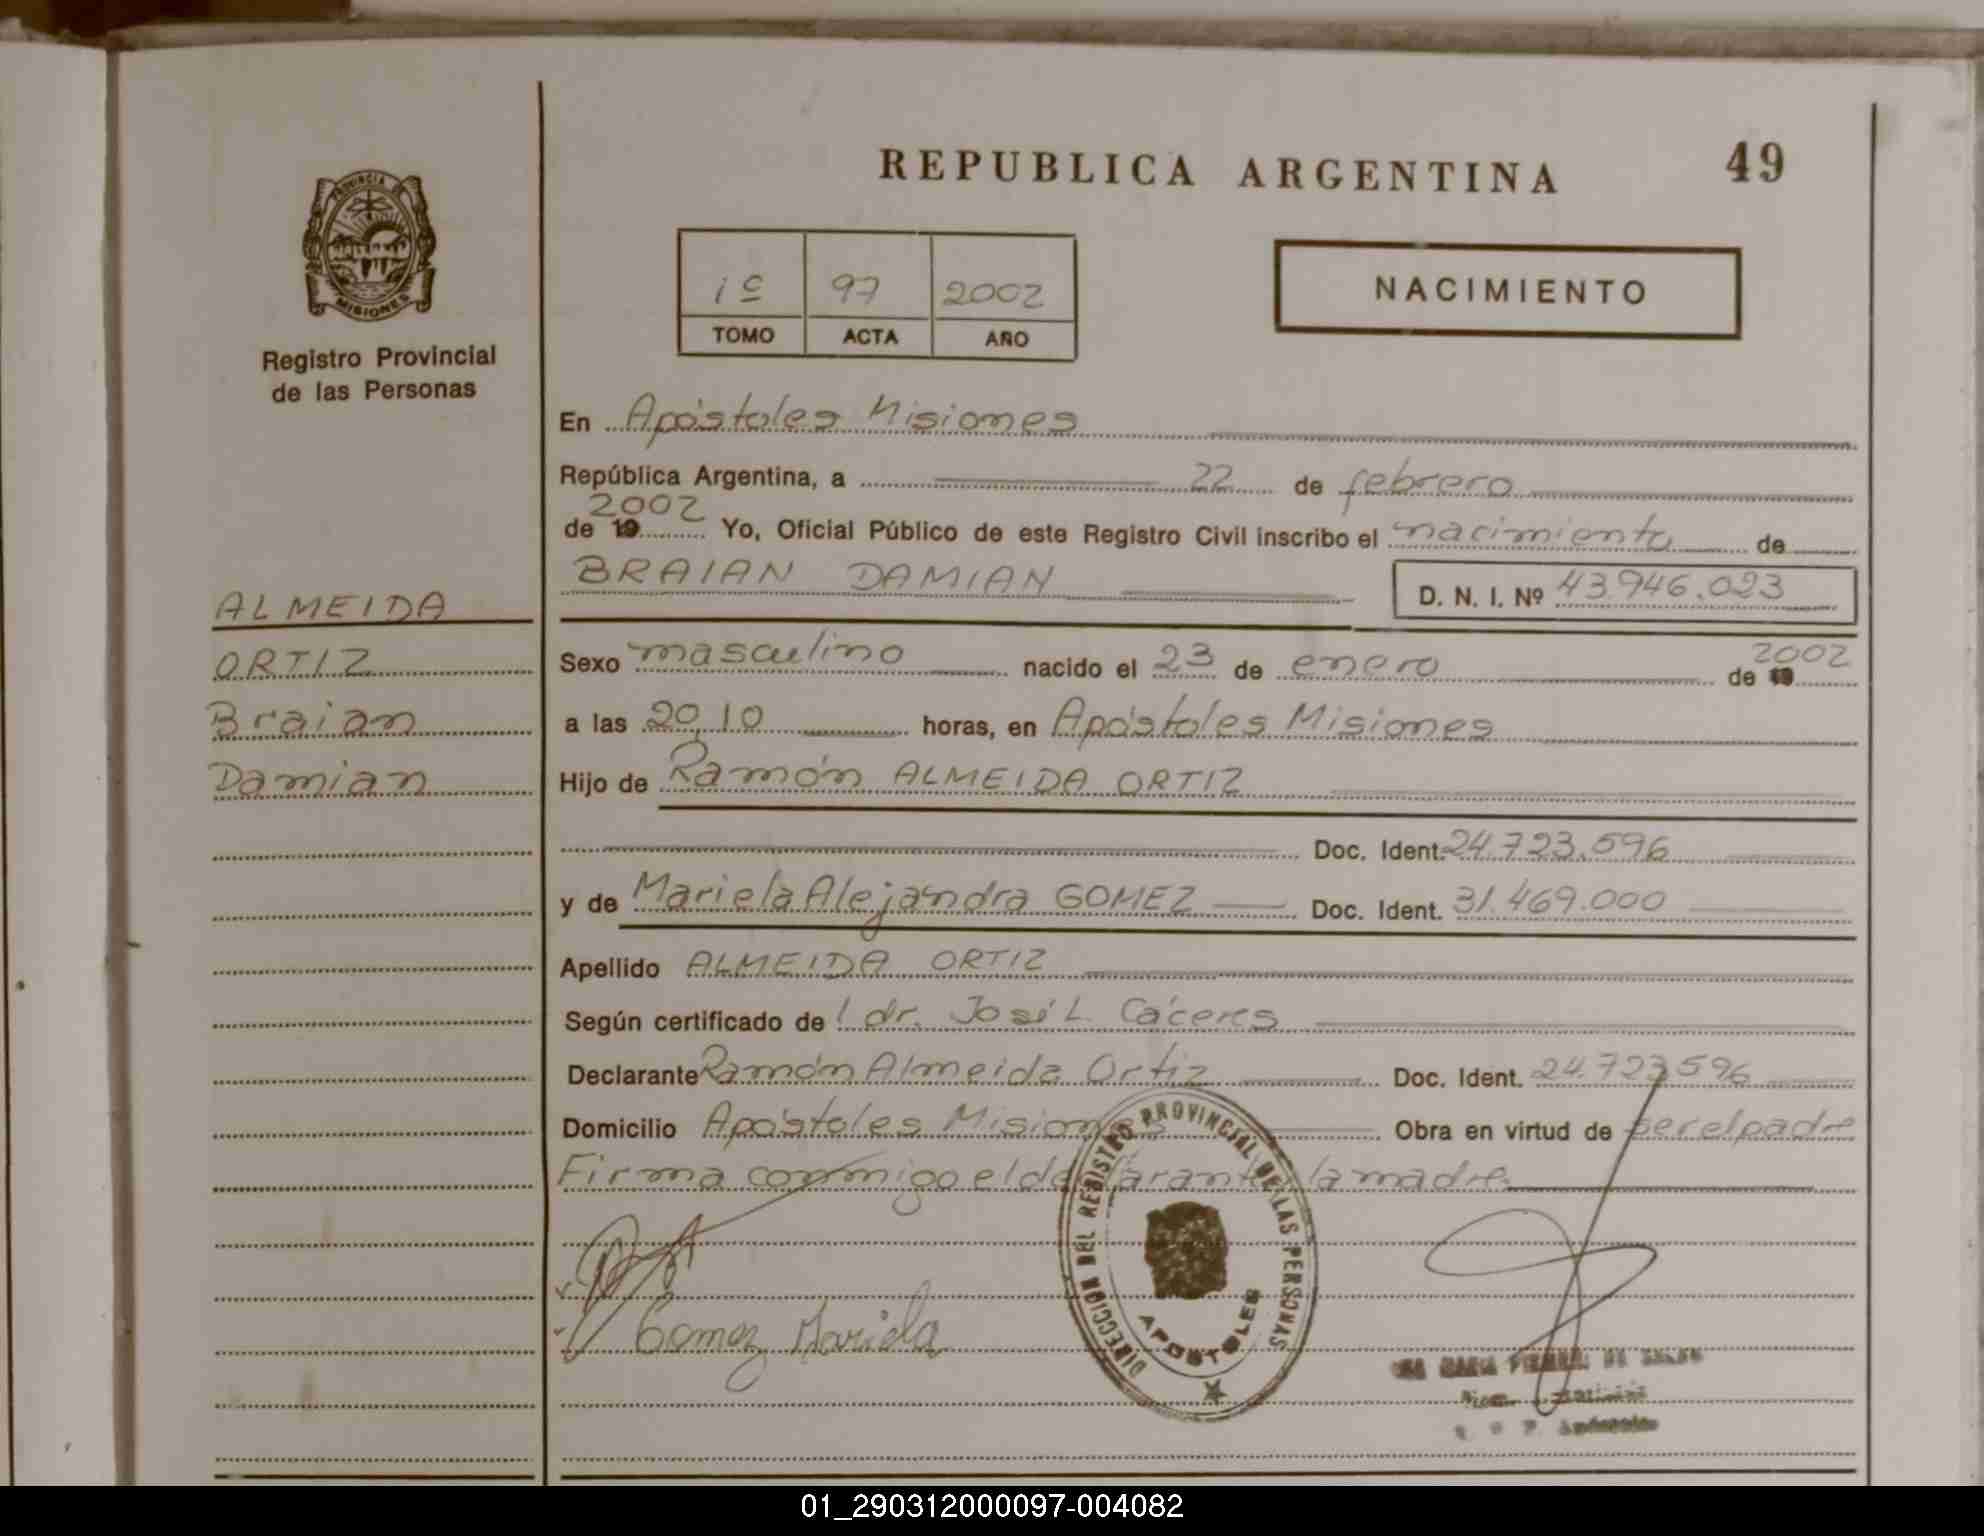 REPUBLICA ARGENTINA
49
PROVINCIA DE
MISIONES
Registro Provincial
de las Personas
1º 97 2002
TOMO ACTA AÑO
NACIMIENTO
En Apóstoles Misiones
República Argentina, a 22 de febrero
2002
de 19 Yo, Oficial Público de este Registro Civil inscribo el nacimiento de
BRAIAN DAMIAN D. N. I. Nº 43.946.023
ALMEIDA
ORTIZ
Braian
Damian
Sexo masculino nacido el 23 de enero de 19 2002
a las 20,10 horas, en Apóstoles Misiones
Hijo de Ramón ALMEIDA ORTIZ
Doc. Ident. 24.723.596
y de Mariela Alejandra GOMEZ Doc. Ident. 31.469.000
Apellido ALMEIDA ORTIZ
Según certificado de l dr. José L. Cáceres
Declarante Ramón Almeida Ortiz Doc. Ident. 24.723596
Domicilio Apóstoles Misiones Obra en virtud de ser el padre
Firma conmigo el declarante la madre
Gomez Mariela
DIRECCION DEL REGISTRO PROVINCIAL DE LAS PERSONAS
APOSTOLES
01_290312000097-004082